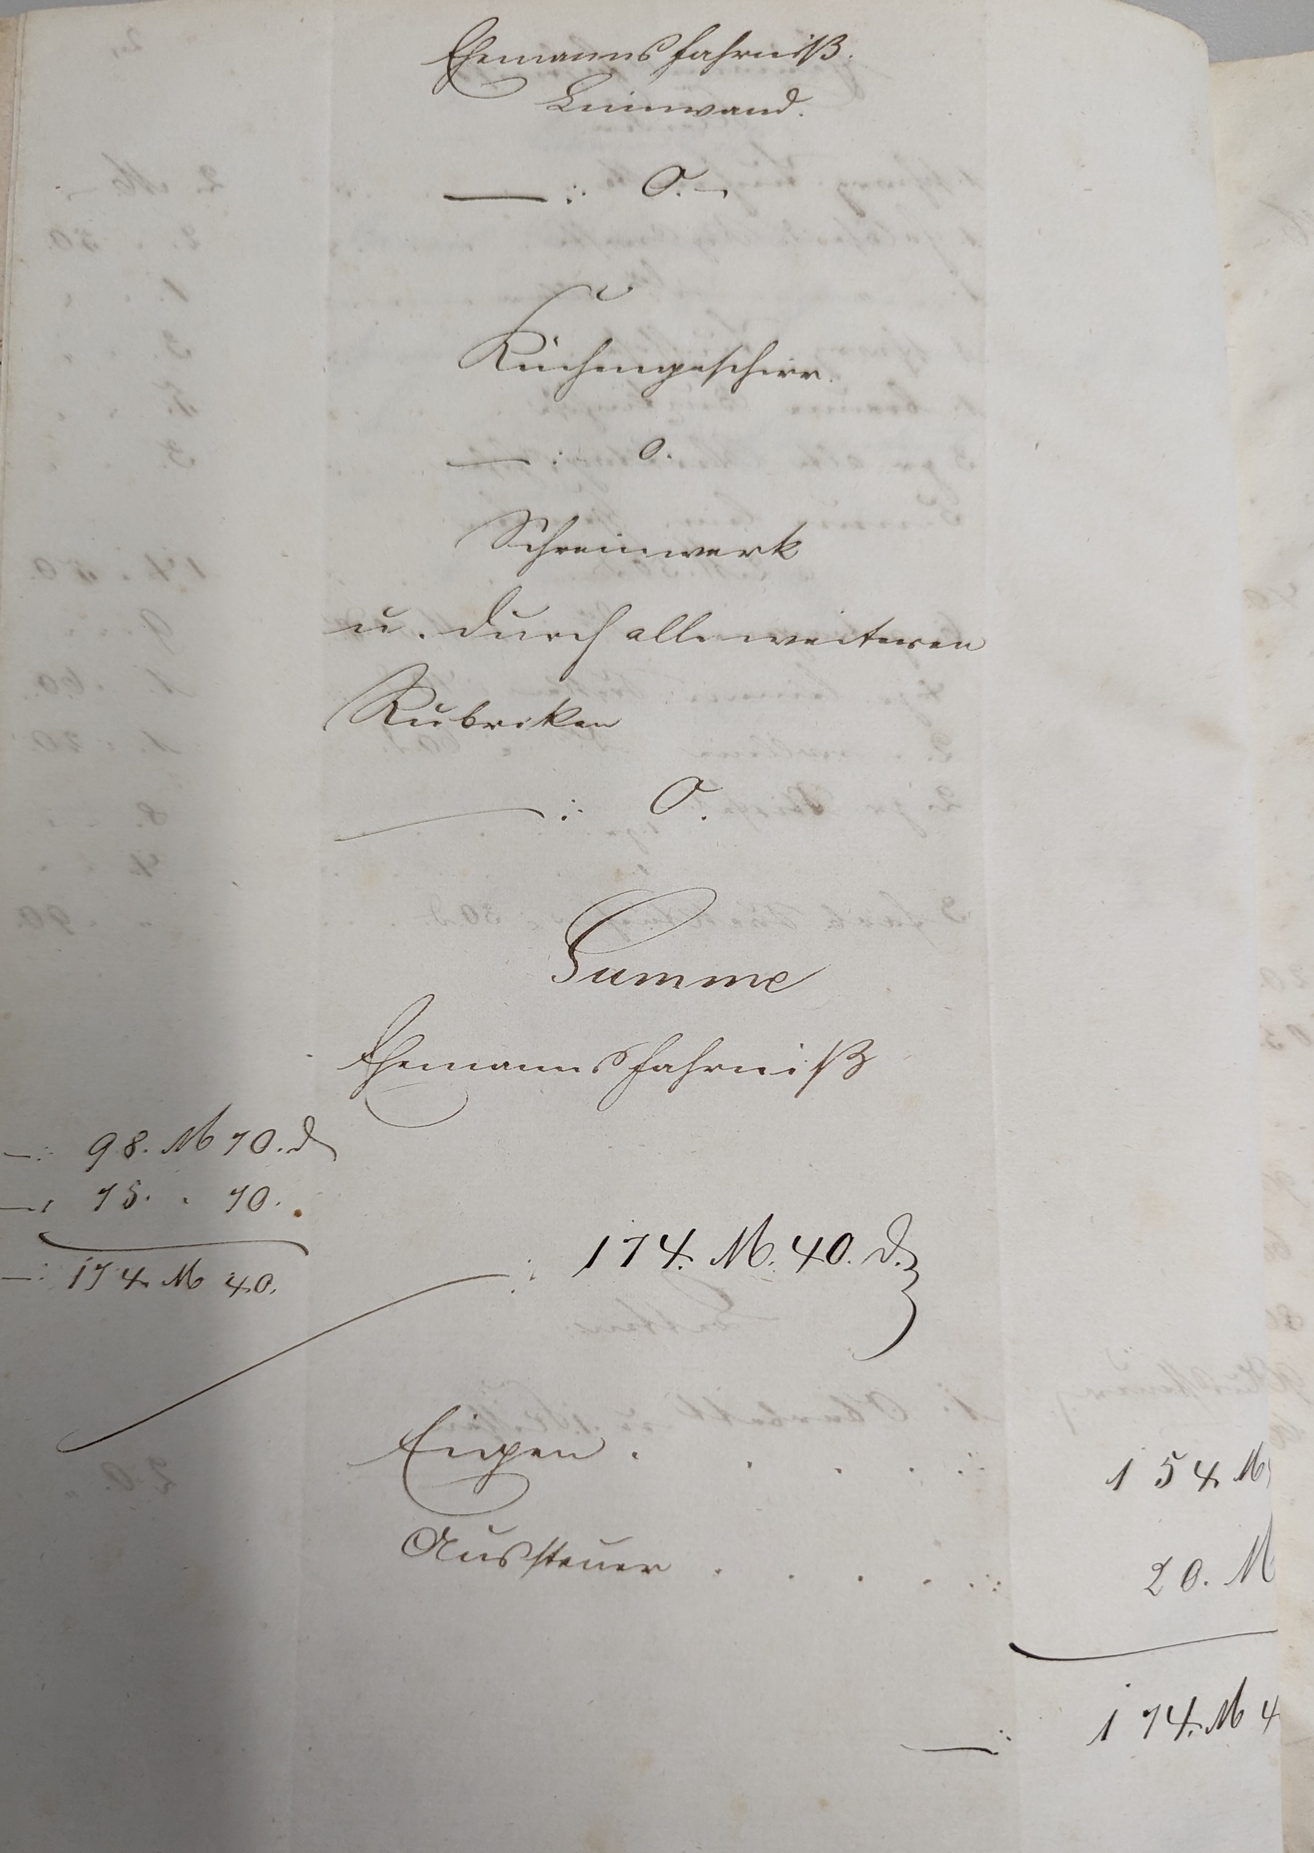 Ehemanns fahrniß.
Leinwand.
—:. O.—
Küchengeschirr.
—: O.
Schreinwerk
u. durch alle weiteren
Rubriken
—:. O.
Summe
Ehemanns fahrniß
—: 98. M 70. d
—: 75. " 70.
—: 174. M 40.
—: 174. M. 40. d.
Eigen . . . . .:. 154 M
Aussteuer . . . . . .:. 20. M
—:. 174. M 4